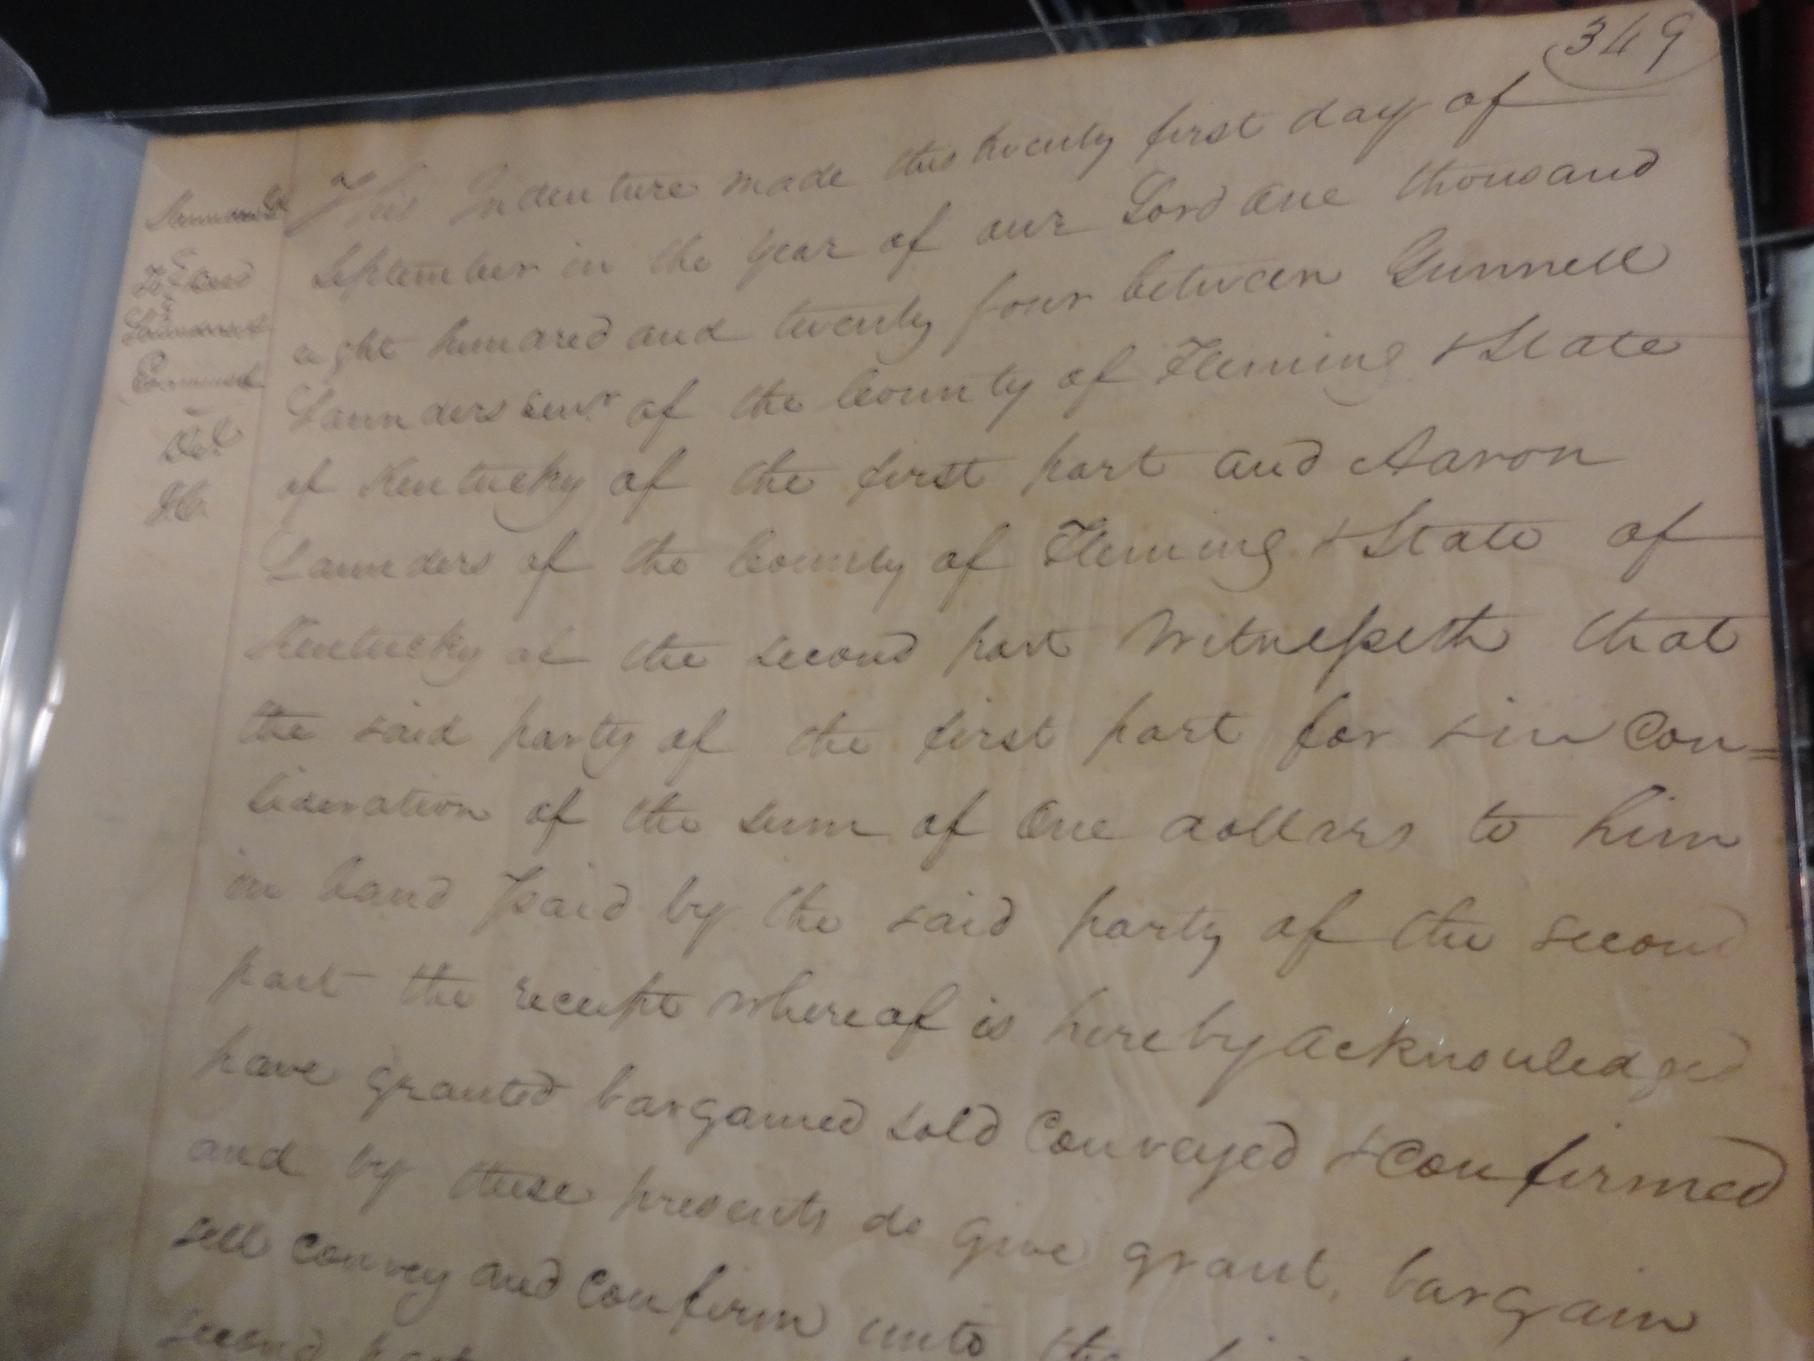 349
This Indenture made this twenty first day of
September in the year of our Lord One thousand
eight hundred and twenty four between Gunnell
Saunders senr of the County of Fleming & State
of Kentucky of the first part and Aaron
Saunders of the County of Fleming & State of
Kentucky of the second part Witnesseth that
the said party of the first part for & in Con=
sideration of the sum of One dollars to him
in hand paid by the said party of the second
part the receipt whereof is hereby acknowledged
have granted bargained sold conveyed & confirmed
and by these presents do give grant, bargain
sell convey and confirm unto the
second part
Saunders
Deed
Saunders
Examined